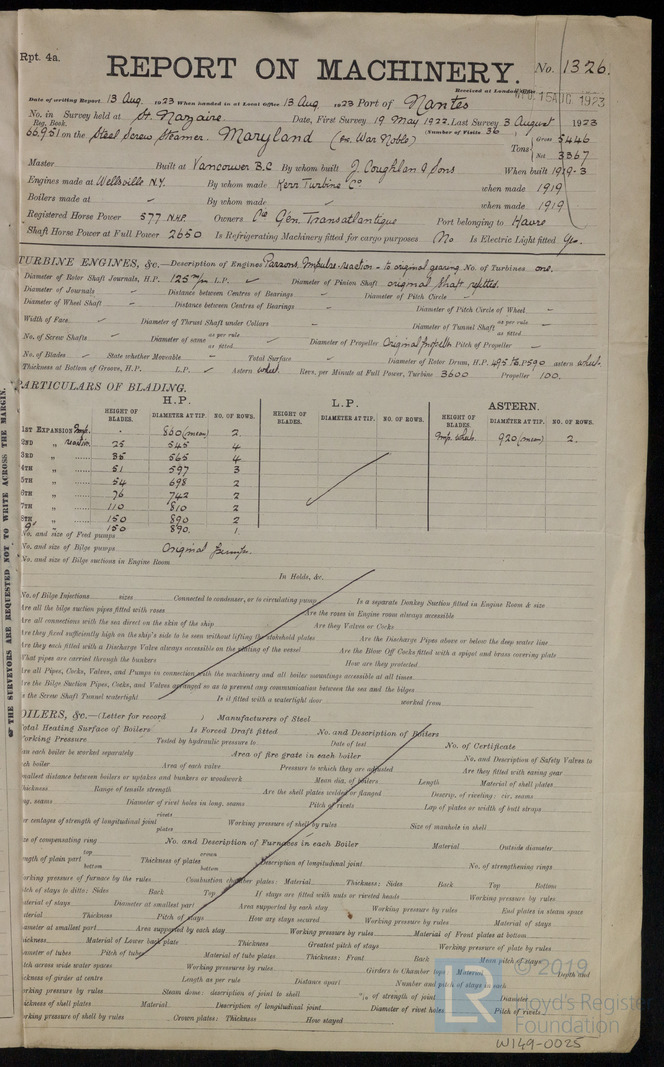 Rpt. 4a.
REPORT ON MACHINERY. No. 1326.
Received at London Office 15 AUG 1923
Date of writing Report 13 Aug. 1923 When handed in at Local Office 13 Aug 1923 Port of Nantes
No. in Reg. Book. Survey held at St. Nazaire Date, First Survey 19 May 1922 Last Survey 3 August 1923
(Number of Visits 36)
66951 on the Steel Screw Steamer Maryland (ex. War Noble) Tons Gross 5446 Net 3367
Master Built at Vancouver B.C By whom built J. Coughlan & Sons When built 1919-3
Engines made at Wellsville N.Y. By whom made Kerr Turbine Co. when made 1919
Boilers made at By whom made when made 1919
Registered Horse Power 577 N.H.P. Owners Cie Gén. Transatlantique Port belonging to Havre
Shaft Horse Power at Full Power 2650 Is Refrigerating Machinery fitted for cargo purposes No Is Electric Light fitted Yes.
TURBINE ENGINES, &c.—Description of Engines Parsons, Impulse-reaction - to original gearing. No. of Turbines one.
Diameter of Rotor Shaft Journals, H.P. 125 m/m L.P. Diameter of Pinion Shaft original shaft refitted.
Diameter of Journals Distance between Centres of Bearings Diameter of Pitch Circle
Diameter of Wheel Shaft Distance between Centres of Bearings Diameter of Pitch Circle of Wheel
Width of Face Diameter of Thrust Shaft under Collars Diameter of Tunnel Shaft as per rule as fitted
No. of Screw Shafts Diameter of same as per rule as fitted Diameter of Propeller Original propeller Pitch of Propeller
No. of Blades State whether Moveable Total Surface Diameter of Rotor Drum, H.P. 495 to 590 astern wheel.
Thickness at Bottom of Groove, H.P. L.P. Astern wheel Revs. per Minute at Full Power, Turbine 3600 Propeller 100.
PARTICULARS OF BLADING.
H.P. L.P. ASTERN.
HEIGHT OF BLADES. DIAMETER AT TIP. NO. OF ROWS. HEIGHT OF BLADES. DIAMETER AT TIP. NO. OF ROWS. HEIGHT OF BLADES. DIAMETER AT TIP. NO. OF ROWS.
1ST EXPANSION Imp. 860 (mean) 2. Imp. wheel. 920 (mean) 2.
2ND " reaction 25 545 4
3RD " 35 565 4
4TH " 51 597 3
5TH " 54 698 2
6TH " 76 742 2
7TH " 110 810 2
8TH " 150 890 2
9" 150 890. 1
No. and size of Feed pumps
No. and size of Bilge pumps Original pumps.
No. and size of Bilge suctions in Engine Room
In Holds, &c.
No. of Bilge Injections sizes Connected to condenser, or to circulating pump Is a separate Donkey Suction fitted in Engine Room & size
Are all the bilge suction pipes fitted with roses Are the roses in Engine room always accessible
Are all connections with the sea direct on the skin of the ship Are they Valves or Cocks
Are they fixed sufficiently high on the ship's side to be seen without lifting the stokehold plates Are the Discharge Pipes above or below the deep water line
Are they each fitted with a Discharge Valve always accessible on the plating of the vessel Are the Blow Off Cocks fitted with a spigot and brass covering plate
What pipes are carried through the bunkers How are they protected
Are all Pipes, Cocks, Valves, and Pumps in connection with the machinery and all boiler mountings accessible at all times
Are the Bilge Suction Pipes, Cocks, and Valves arranged so as to prevent any communication between the sea and the bilges
Is the Screw Shaft Tunnel watertight Is it fitted with a watertight door worked from
BOILERS, &c.—(Letter for record ) Manufacturers of Steel
Total Heating Surface of Boilers Is Forced Draft fitted No. and Description of Boilers
Working Pressure Tested by hydraulic pressure to Date of test No. of Certificate
Can each boiler be worked separately Area of fire grate in each boiler No. and Description of Safety Valves to
each boiler Area of each valve Pressure to which they are adjusted Are they fitted with easing gear
Smallest distance between boilers or uptakes and bunkers or woodwork Mean dia. of boilers Length Material of shell plates
Thickness Range of tensile strength Are the shell plates welded or flanged Descrip. of riveting: cir. seams
long. seams Diameter of rivet holes in long. seams Pitch of rivets Lap of plates or width of butt straps
Per centages of strength of longitudinal joint rivets plates Working pressure of shell by rules Size of manhole in shell
Size of compensating ring No. and Description of Furnaces in each Boiler Material Outside diameter
Length of plain part top bottom Thickness of plates crown bottom Description of longitudinal joint No. of strengthening rings
Working pressure of furnace by the rules Combustion chamber plates: Material Thickness: Sides Back Top Bottom
Pitch of stays to ditto: Sides Back Top If stays are fitted with nuts or riveted heads Working pressure by rules
Material of stays Diameter at smallest part Area supported by each stay Working pressure by rules End plates in steam space
Material Thickness Pitch of stays How are stays secured Working pressure by rules Material of stays
Diameter at smallest part Area supported by each stay Working pressure by rules Material of Front plates at bottom
Thickness Material of Lower back plate Thickness Greatest pitch of stays Working pressure of plate by rules
Diameter of tubes Pitch of tubes Material of tube plates Thickness: Front Back Mean pitch of stays
Pitch across wide water spaces Working pressures by rules Girders to Chamber tops: Material Depth and
thickness of girder at centre Length as per rule Distance apart Number and pitch of stays in each
Working pressure by rules Steam dome: description of joint to shell % of strength of joint Diameter
Thickness of shell plates Material Description of longitudinal joint Diameter of rivet holes Pitch of rivets
Working pressure of shell by rules Crown plates: Thickness How stayed
THE SURVEYORS ARE REQUESTED NOT TO WRITE ACROSS THE MARGIN.
© 2019
LR
Lloyd's Register
Foundation
W149-0025